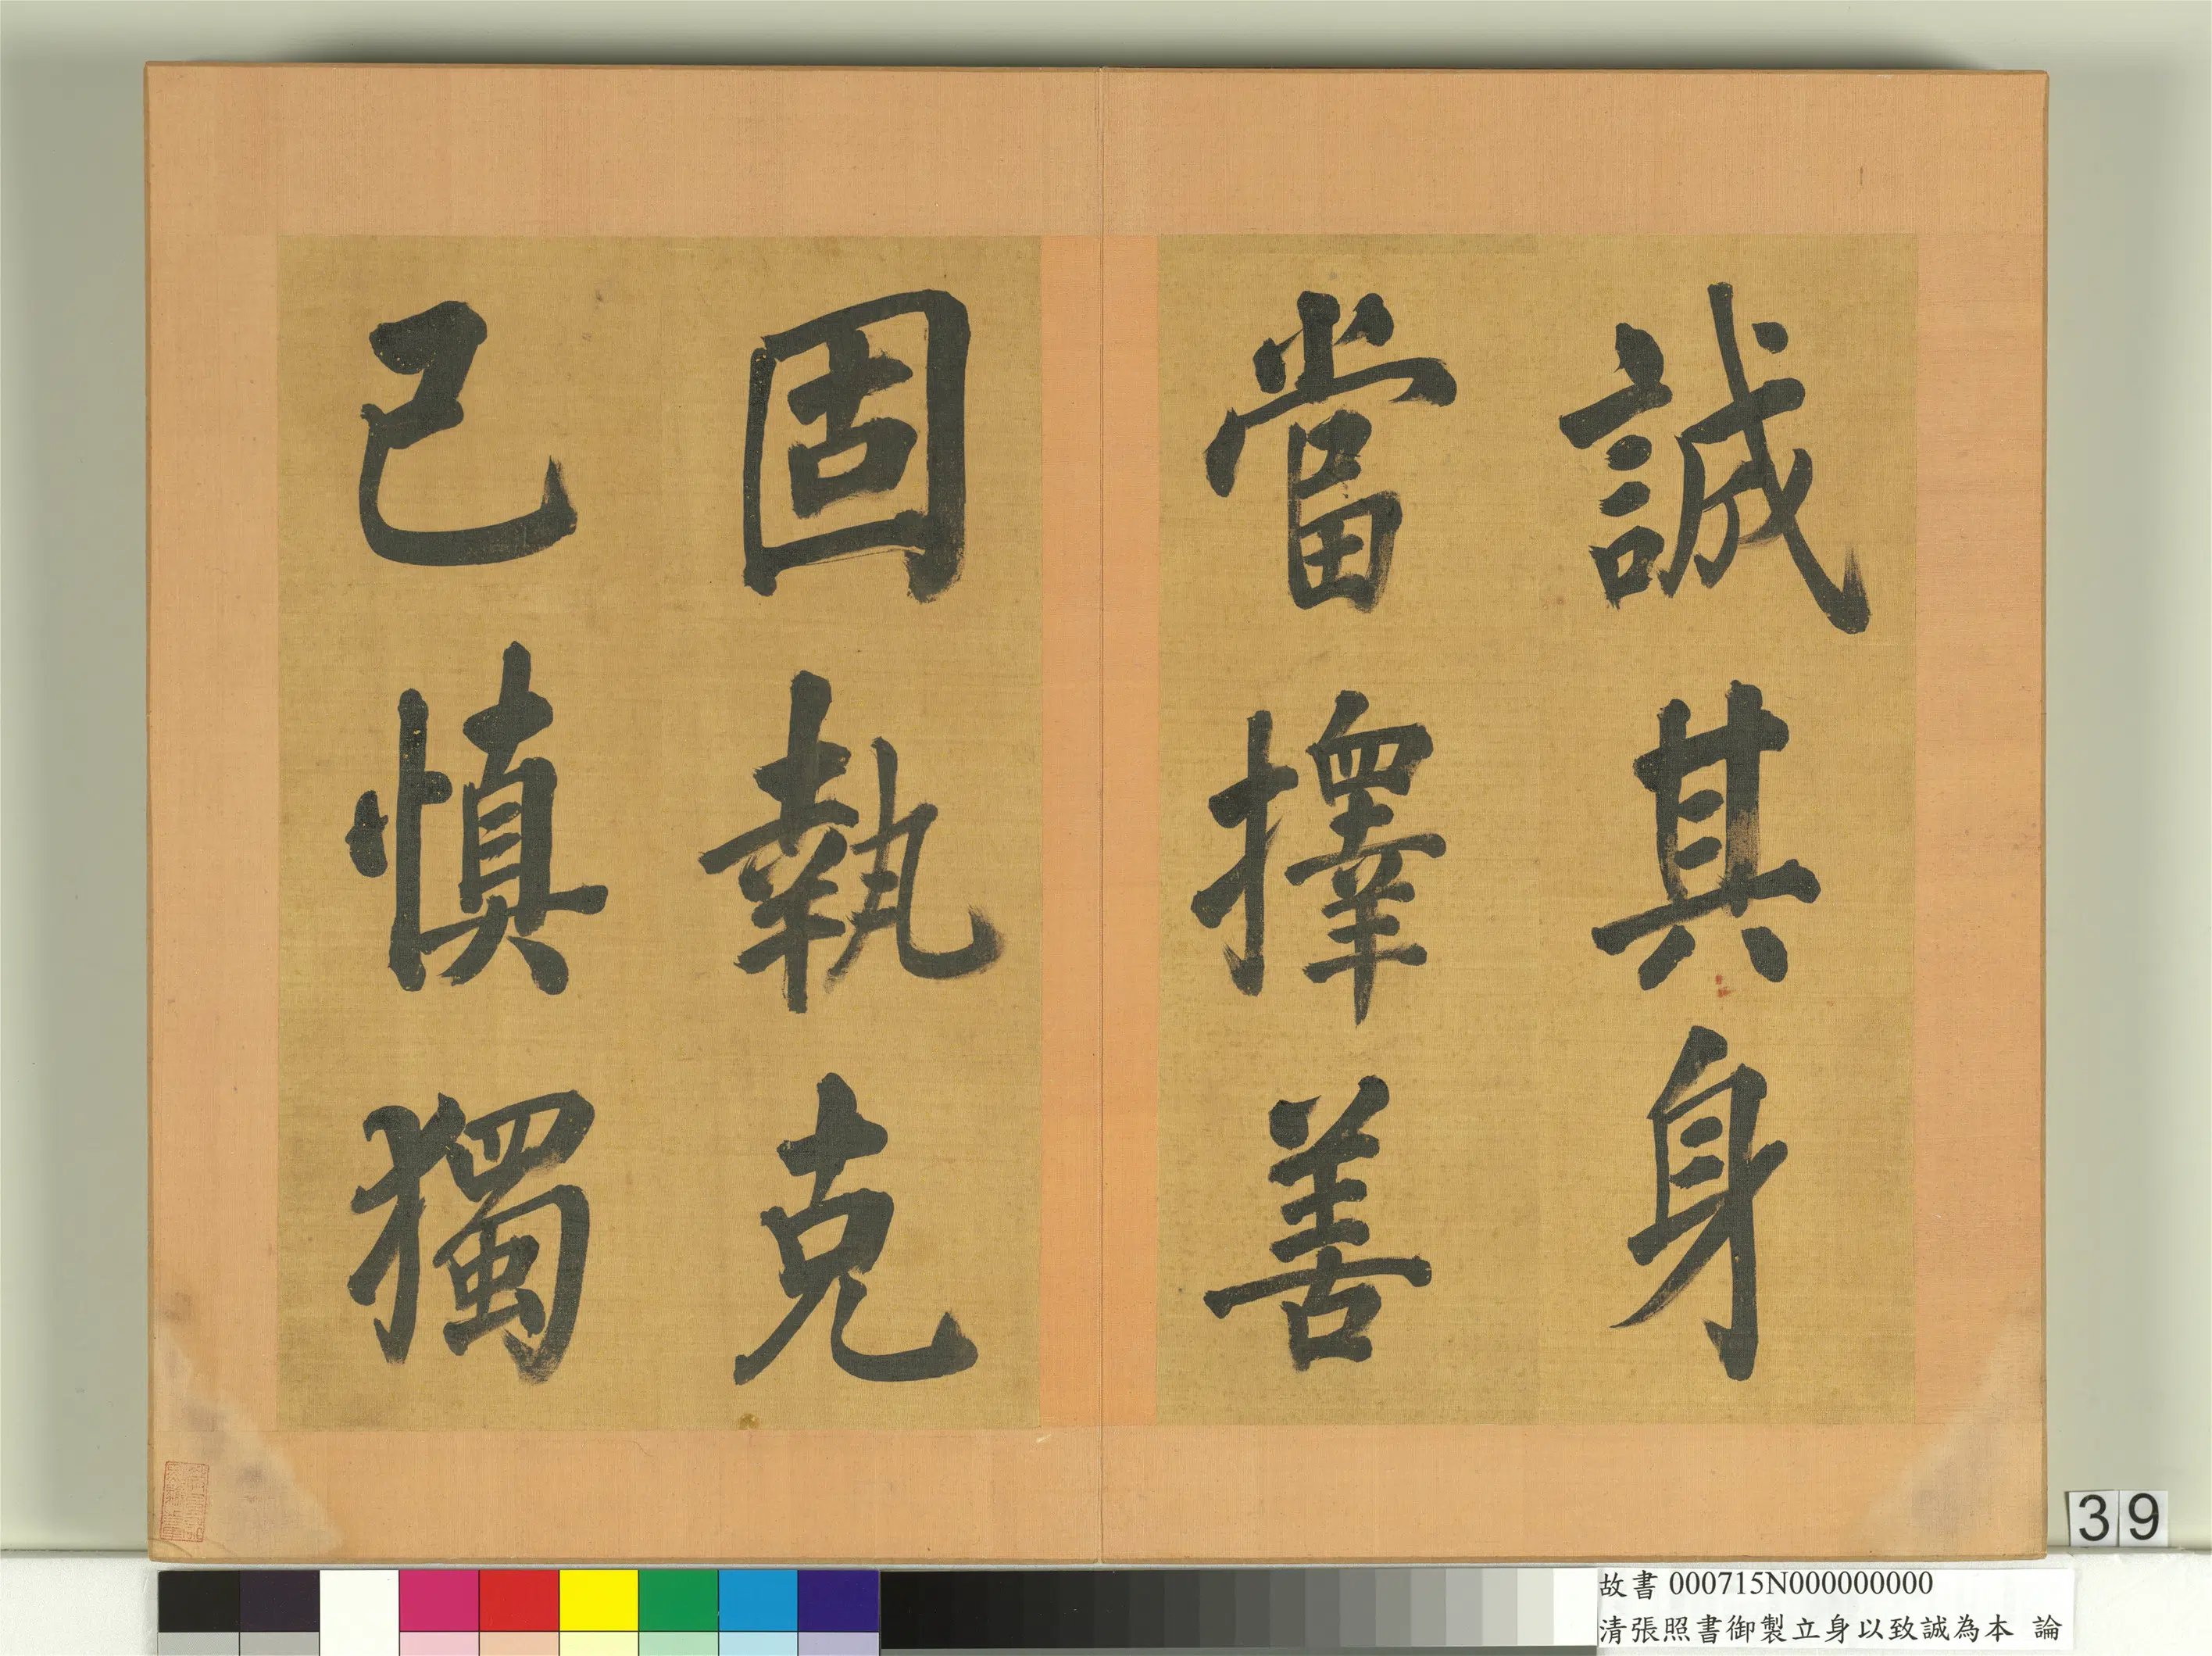 誠其身
當擇善
固執克
己慎獨
39
故書 000715N000000000
清張照書御製立身以致誠為本 論